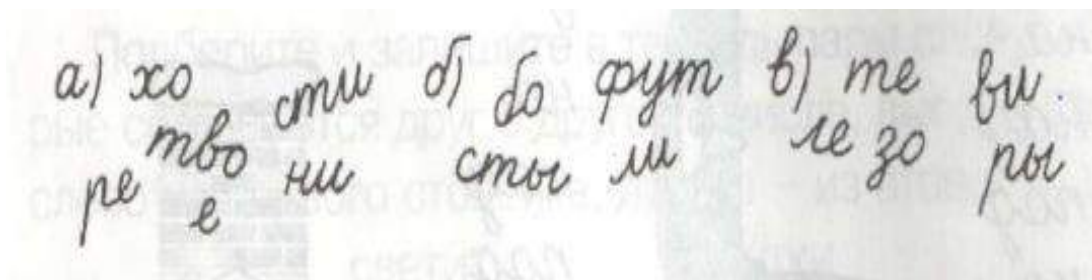 а) хо сти б) бо фут в) те ви
ре тво е ни сты ли ле зо ры